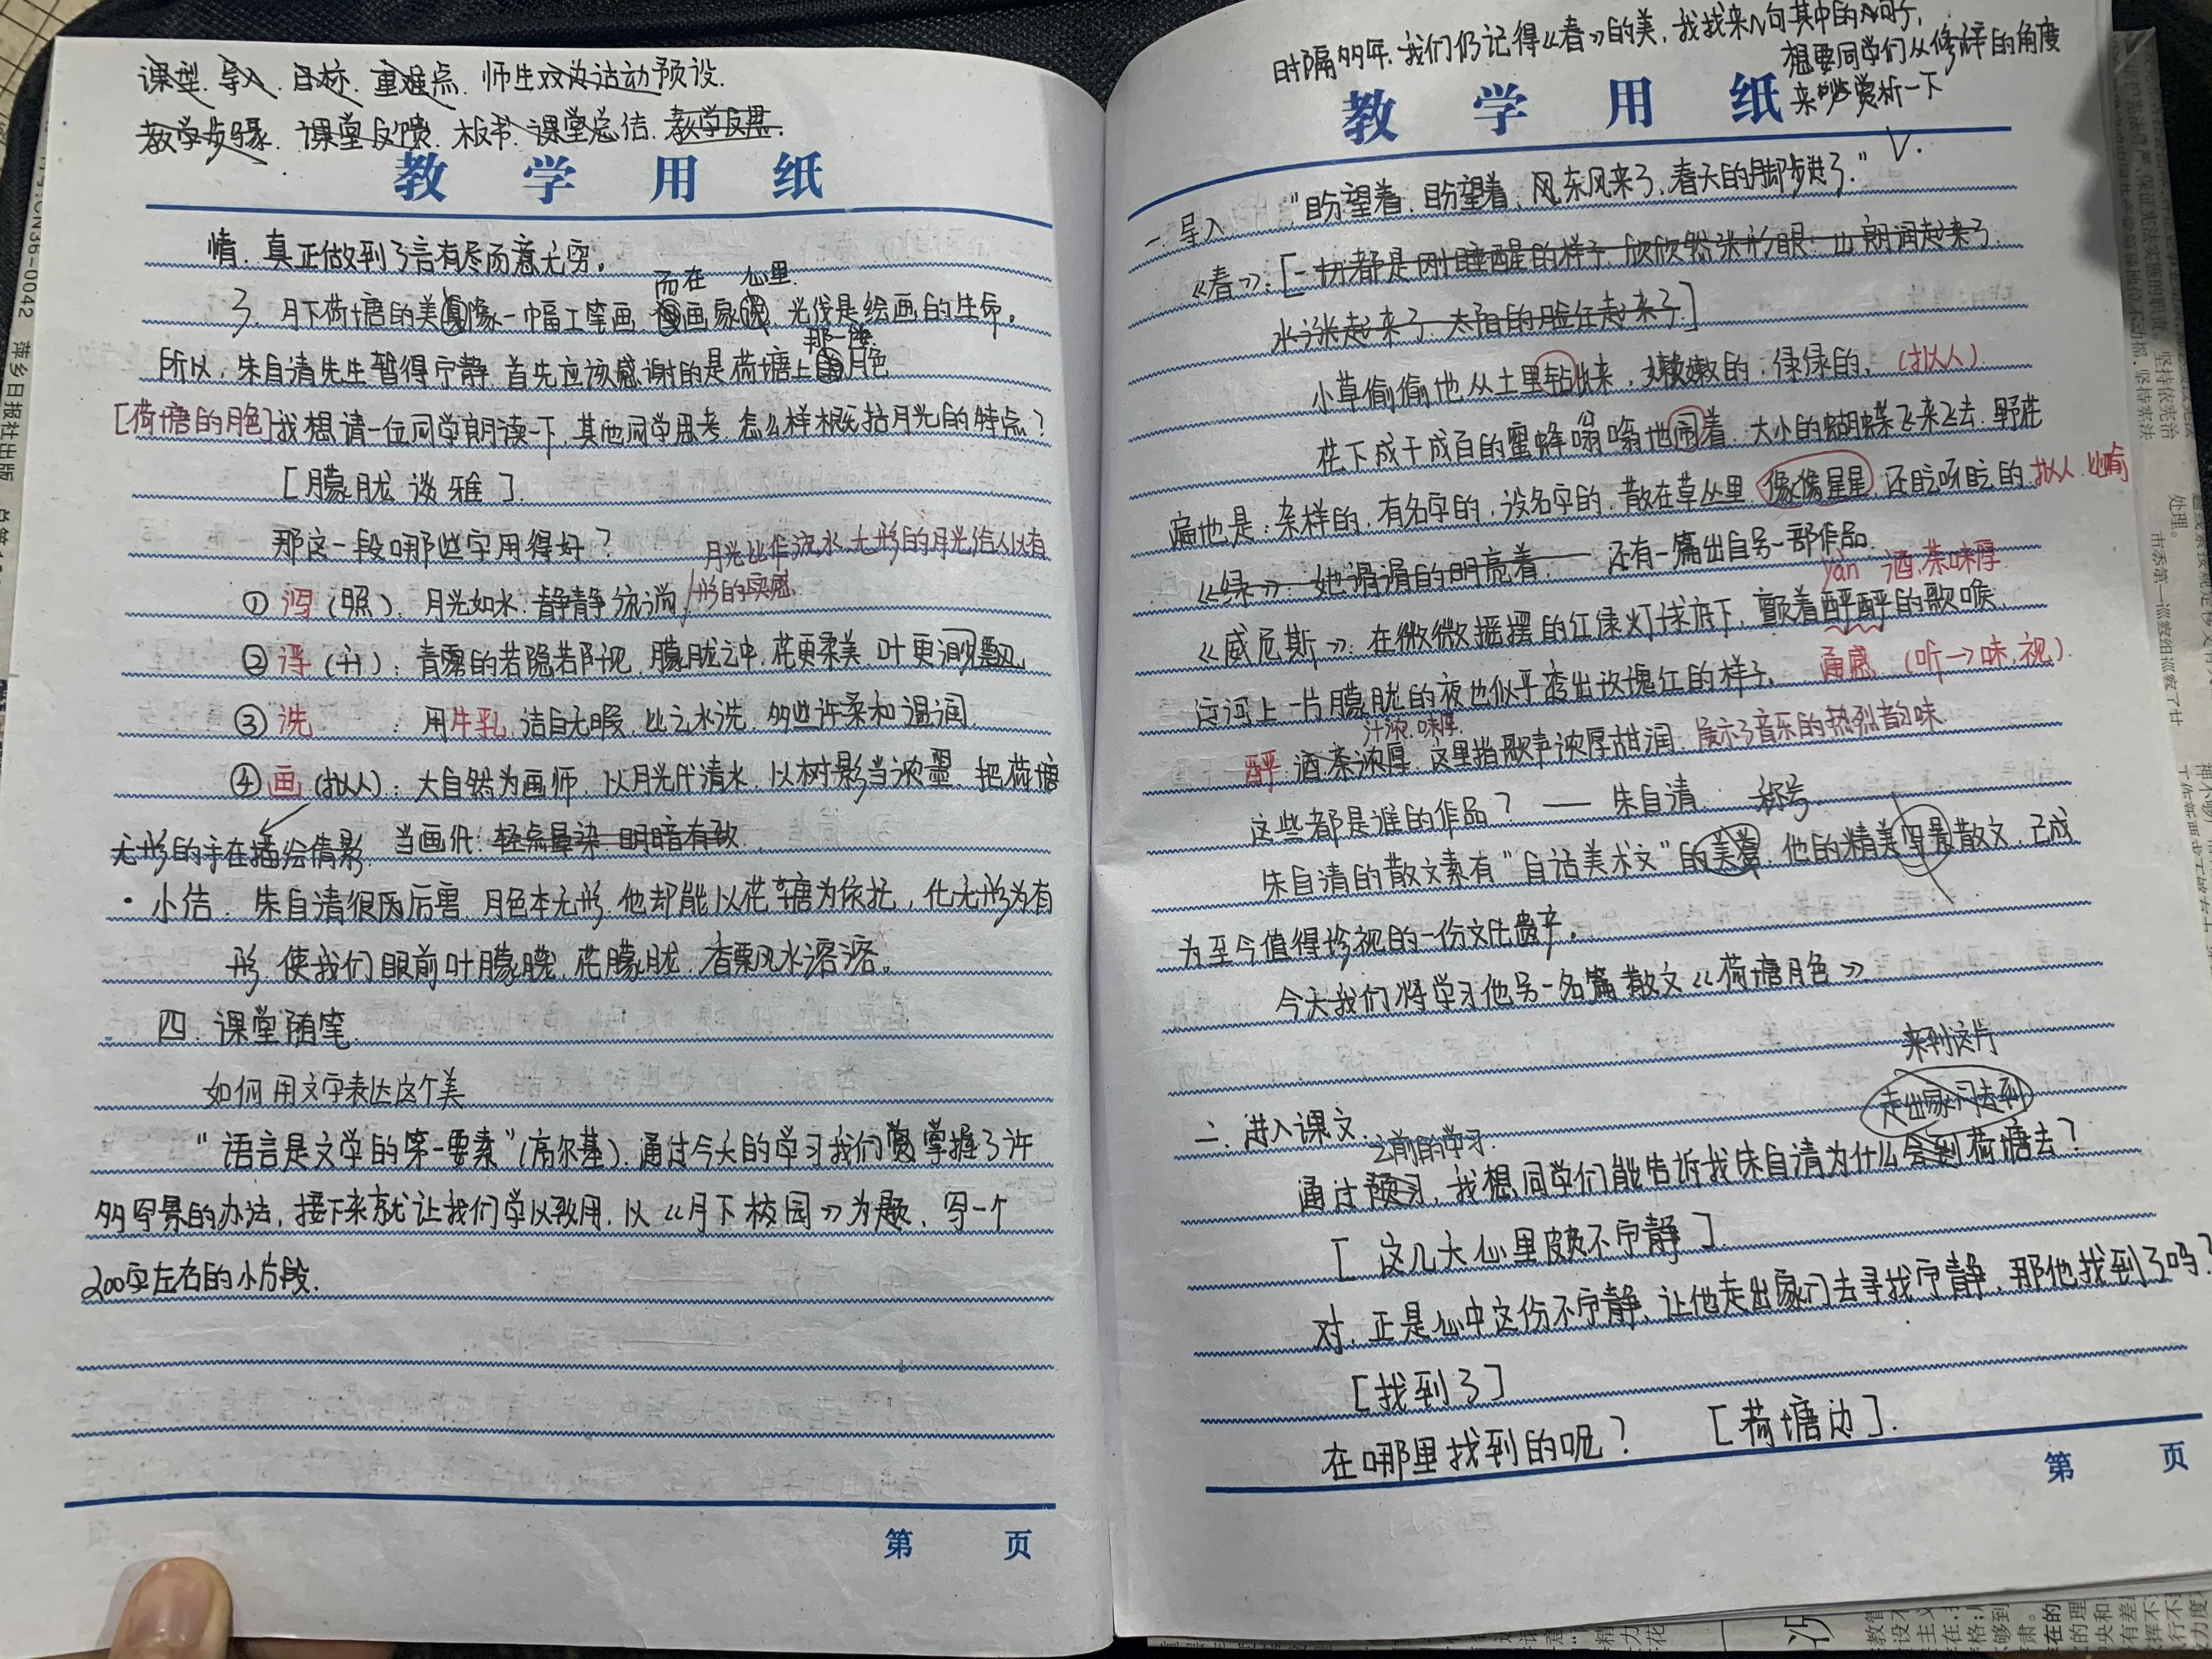 课型. 导入. 目标. 重难点. 师生双边活动预设.
教学步骤. 课堂反馈. 板书. 课堂总结. 教学反思.
教 学 用 纸
情. 真正做到了言有尽而意无穷。
而在 心里.
3. 月下荷塘的美景像一幅工笔画 画家 光线是绘画的生命。
那一缕
所以, 朱自清先生暂得宁静, 首先应该感谢的是荷塘上 月色
[荷塘的月色]我想请一位同学朗读一下, 其他同学思考, 怎么样概括月光的特点?
[朦胧 淡雅].
那这一段哪些字用得好?
月光比作流水, 无形的月光给人以有
形的实感.
① 泻 (照). 月光如水. 静静流淌
② 浮 (升): 青雾的若隐若现, 朦胧之中, 花更柔美, 叶更 飘.
③ 洗 : 用牛乳, 洁白无暇, 比之水洗, 多些许柔和温润.
④ 画 (拟人): 大自然为画师, 以月光代清水, 以树影当浓墨, 把荷塘
无形的手在描绘倩影. 当画纸: 轻点晕染 明暗有致.
· 小结. 朱自清很厉害, 月色本无形, 他却能以花塘为依托, 化无形为有
形. 使我们眼前叶朦朦, 花朦胧, 香飘风水溶溶。
四. 课堂随笔.
如何用文字表达这个美
“语言是文学的第一要素”(高尔基). 通过今天的学习我们 掌握了许
多写景的办法, 接下来就让我们学以致用, 以《月下校园》为题, 写一个
200字左右的小片段.
第 页
时隔多年, 我们仍记得《春》的美, 我找来几句其中的 句子,
想要同学们从修辞的角度
来 赏析一下
教 学 用 纸
一. 导入 “盼望着, 盼望着, 东风来了, 春天的脚步近了.” V.
《春》: [一切都是刚睡醒的样子, 欣欣然张开眼. 山朗润起来了.
水涨起来了, 太阳的脸红起来了.]
小草偷偷地从土里钻出来, 嫩嫩的, 绿绿的. (拟人)
花下成千成百的蜜蜂嗡嗡地闹着, 大小的蝴蝶飞来飞去. 野花
遍地是: 杂样的, 有名字的, 没名字的, 散在草丛里 像 像星星, 还眨呀眨的. 拟人 比喻
《绿》: 她滑滑的明亮着, —— 还有一篇出自另一部作品.
yàn 酒, 茶味厚
《威尼斯》: 在微微摇摆的红绿灯球底下, 颤着酽酽的歌喉,
运河上一片朦胧的夜也似乎透出玫瑰红的样子. 通感 (听→味, 视).
汁浓, 味厚.
酽: 酒茶浓厚, 这里指歌声浓厚甜润, 展示了音乐的热烈韵味.
这些都是谁的作品? —— 朱自清 称号
朱自清的散文素有“白话美术文”的美誉, 他的精美写景散文, 已成
为至今值得珍视的一份文化遗产.
今天我们将学习他另一名篇散文《荷塘月色》
来到这片
走出家门去到
二. 进入课文.
之前的学习.
通过预习, 我想同学们能告诉我朱自清为什么会到荷塘去?
[这几天心里颇不宁静].
对, 正是心中这份不宁静, 让他走出家门去寻找宁静, 那他找到了吗?
[找到了]
在哪里找到的呢? [荷塘边].
第 页